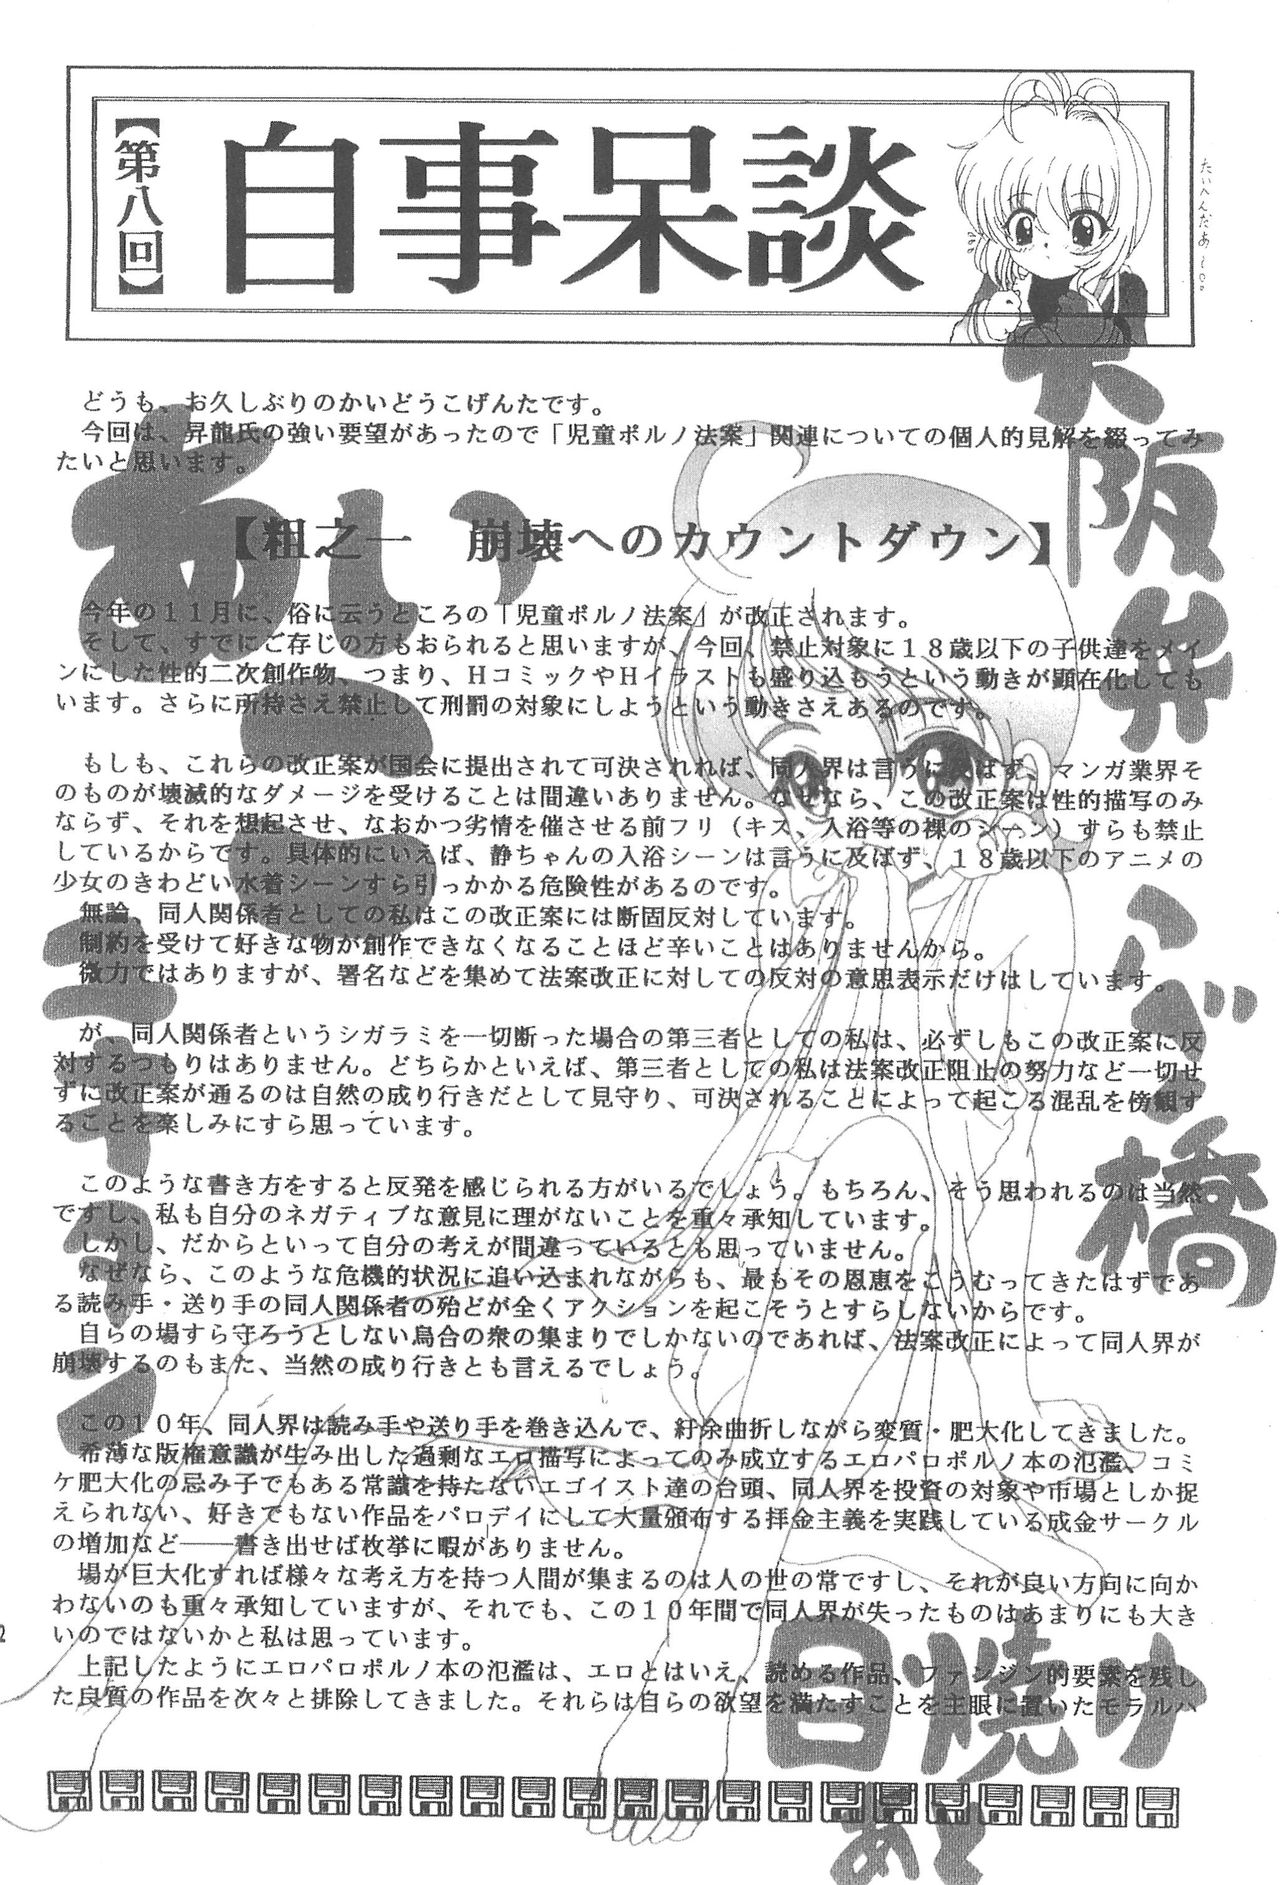 【第八回】
自事呆談
たいへんだあ〜。
どうも、お久しぶりのかいどうこげんたです。
今回は、昇龍氏の強い要望があったので「児童ポルノ法案」関連についての個人的見解を綴ってみ
たいと思います。
【粗之一　崩壊へのカウントダウン】
今年の１１月に、俗に云うところの「児童ポルノ法案」が改正されます。
そして、すでにご存じの方もおられると思いますが、今回、禁止対象に１８歳以下の子供達をメイ
ンにした性的二次創作物、つまり、ＨコミックやＨイラストも盛り込もうという動きが顕在化しても
います。さらに所持さえ禁止して刑罰の対象にしようという動きさえあるのです。
もしも、これらの改正案が国会に提出されて可決されれば、同人界は言うに及ばず、マンガ業界そ
のものが壊滅的なダメージを受けることは間違いありません。なぜなら、この改正案は性的描写のみ
ならず、それを想起させ、なおかつ劣情を催させる前フリ（キス、入浴等の裸のシーン）すらも禁止
しているからです。具体的にいえば、静ちゃんの入浴シーンは言うに及ばず、１８歳以下のアニメの
少女のきわどい水着シーンすら引っかかる危険性があるのです。
無論、同人関係者としての私はこの改正案には断固反対しています。
制約を受けて好きな物が創作できなくなることほど辛いことはありませんから。
微力ではありますが、署名などを集めて法案改正に対しての反対の意思表示だけはしています。
が、同人関係者というシガラミを一切断った場合の第三者としての私は、必ずしもこの改正案に反
対するつもりはありません。どちらかといえば、第三者としての私は法案改正阻止の努力など一切せ
ずに改正案が通るのは自然の成り行きだとして見守り、可決されることによって起こる混乱を傍観す
ることを楽しみにすら思っています。
このような書き方をすると反発を感じられる方がいるでしょう。もちろん、そう思われるのは当然
ですし、私も自分のネガティブな意見に理がないことを重々承知しています。
しかし、だからといって自分の考えが間違っているとも思っていません。
なぜなら、このような危機的状況に追い込まれながらも、最もその恩恵をこうむってきたはずであ
る読み手・送り手の同人関係者の殆どが全くアクションを起こそうとすらしないからです。
自らの場すら守ろうとしない烏合の衆の集まりでしかないのであれば、法案改正によって同人界が
崩壊するのもまた、当然の成り行きとも言えるでしょう。
この１０年、同人界は読み手や送り手を巻き込んで、紆余曲折しながら変質・肥大化してきました。
希薄な版権意識が生み出した過剰なエロ描写によってのみ成立するエロパロポルノ本の氾濫、コミ
ケ肥大化の忌み子でもある常識を持たないエゴイスト達の台頭、同人界を投資の対象や市場としか捉
えられない、好きでもない作品をパロデイにして大量頒布する拝金主義を実践している成金サークル
の増加など――書き出せば枚挙に暇がありません。
場が巨大化すれば様々な考え方を持つ人間が集まるのは人の世の常ですし、それが良い方向に向か
わないのも重々承知していますが、それでも、この１０年間で同人界が失ったものはあまりにも大き
いのではないかと私は思っています。
上記したようにエロパロポルノ本の氾濫は、エロとはいえ、読める作品、ファンジン的要素を残し
た良質の作品を次々と排除してきました。それらは自らの欲望を満たすことを主眼に置いたモラルハ
大阪弁
日焼けあと
2